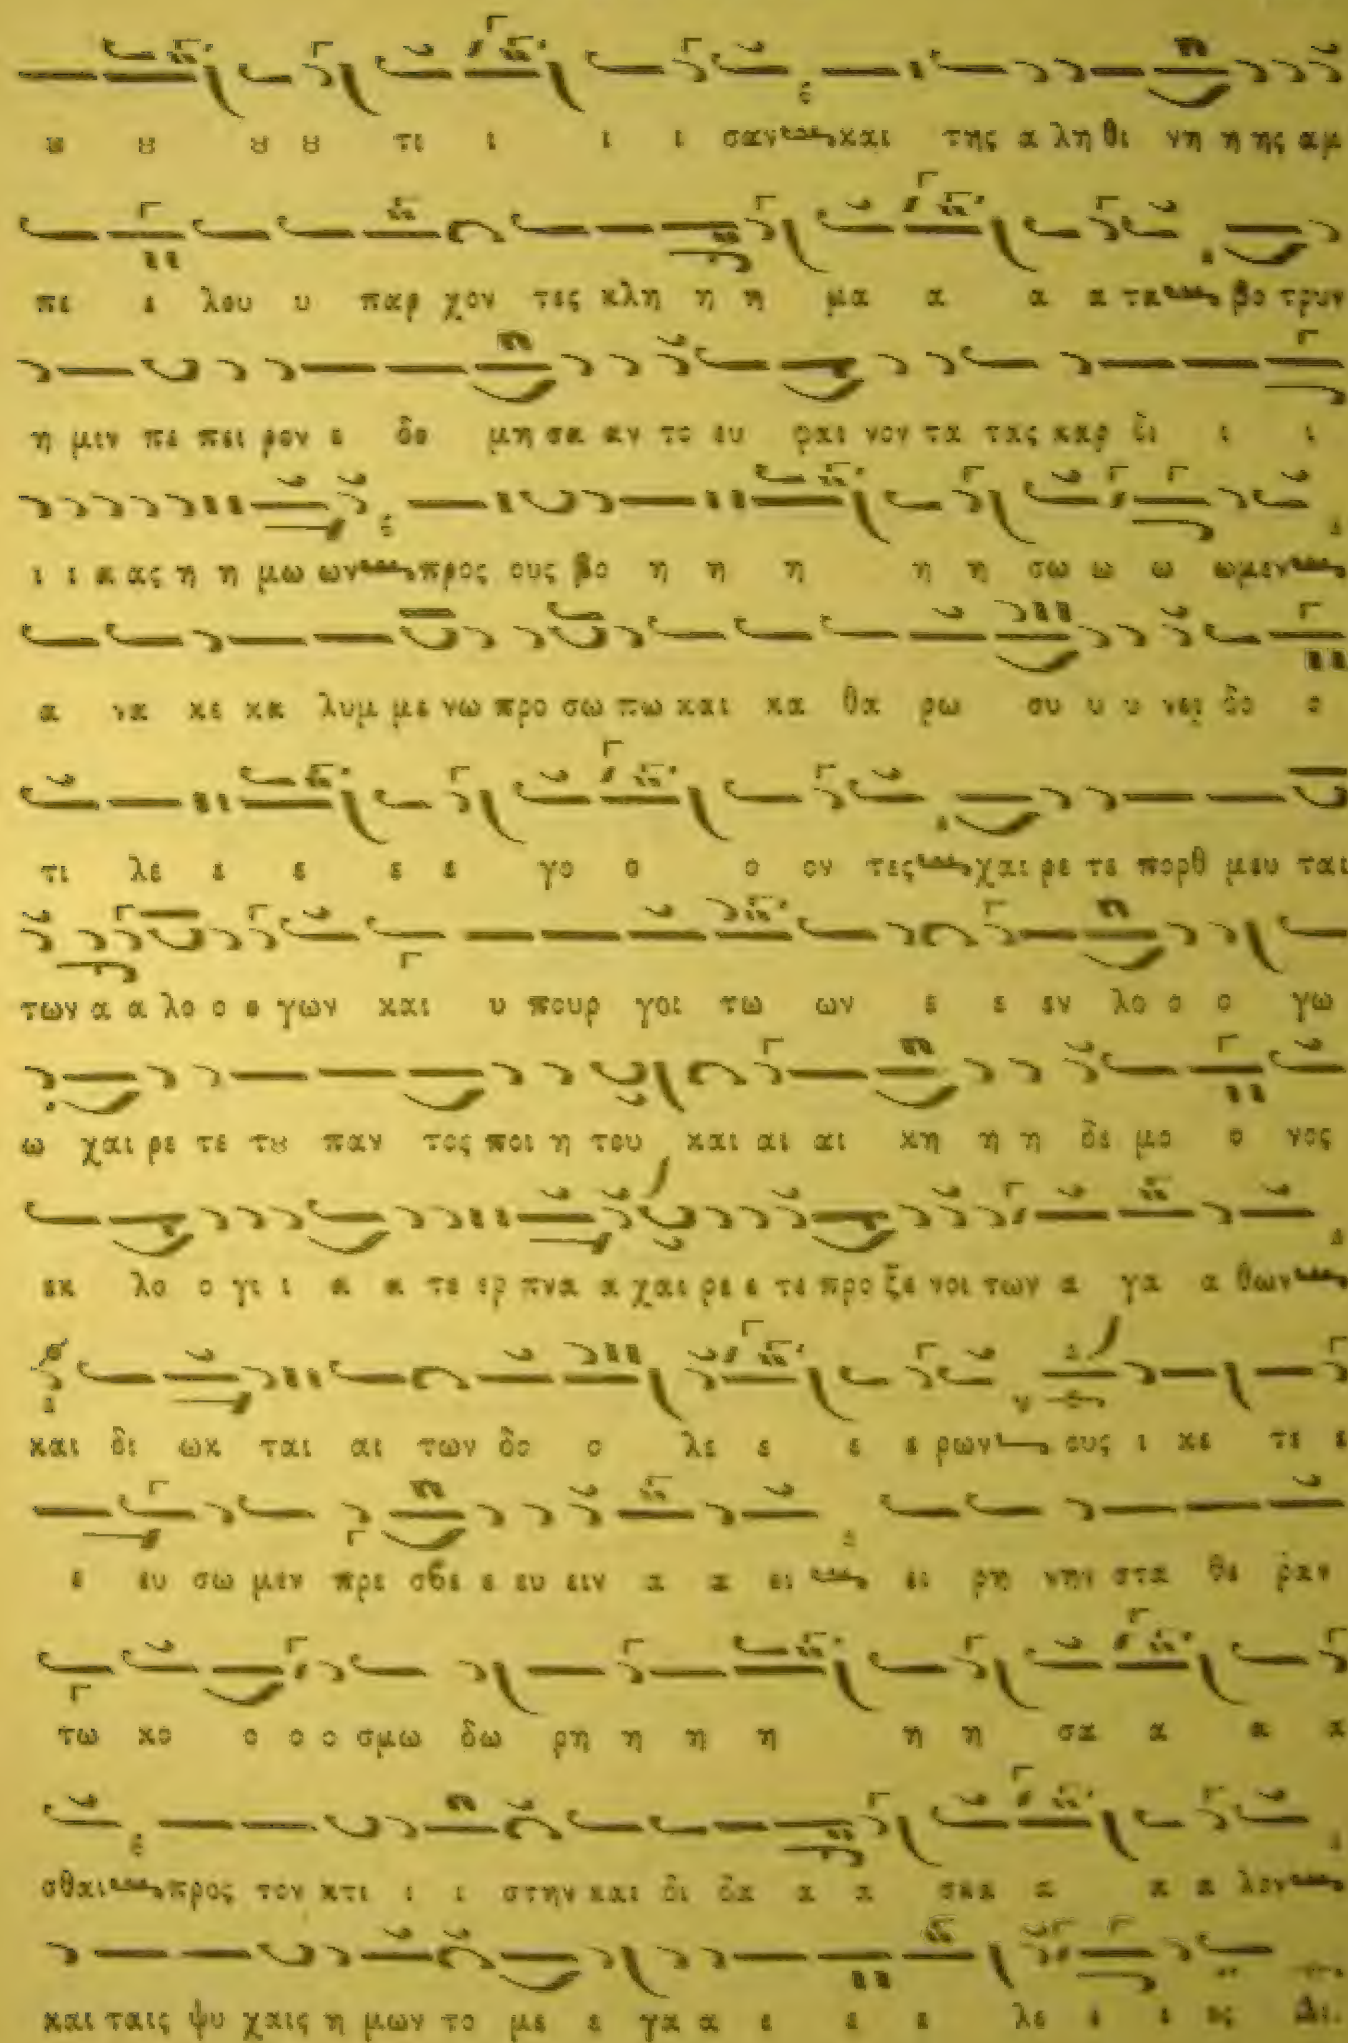 ȣ ȣ ȣ ȣ τι ι ι ι σαν και της α λη θι νη η ης αμ
πε ε λου υ παρ χον τες κλη η η μα α α α τα βο τρυν
η μιν πε πει ρον ε δο μη σα αν το ευ φραι νον τα τας καρ δι ι ι
ι ι α ας η η μω ων προς ους βο η η η η η σω ω ω ωμεν
α να κε κα λυμ με νω προ σω πω και κα θα ρω συ υ υ νει δο ο
τι λε ε ε ε ε γο ο ο ον τες χαι ρε τε πορθ μευ ται
των α α λο ο ο γων και υ πουρ γοι τω ων ε ε εν λο ο ο γω
ω χαι ρε τε τȣ παν τος ποι η του και αι αι κη η η δε μο ο νος
εκ λο ο γι ι α α τε ερ πνα α χαι ρε ε τε προ ξε νοι των α γα α θων
και δι ωκ ται αι των δο ο λε ε ε ε ρων ους ι κε τε ε
ε ευ σω μεν πρε σβε ε ευ ειν α α ει ει ρη νην στα θε ραν
τω κο ο ο ο σμω δω ρη η η η η η σα α α α
σθαι προς τον κτι ι ι στην και δι δα α α σκα α α α λον
και ταις ψυ χαις η μων το με ε γα α ε ε ε λε ε ε ος Δι.